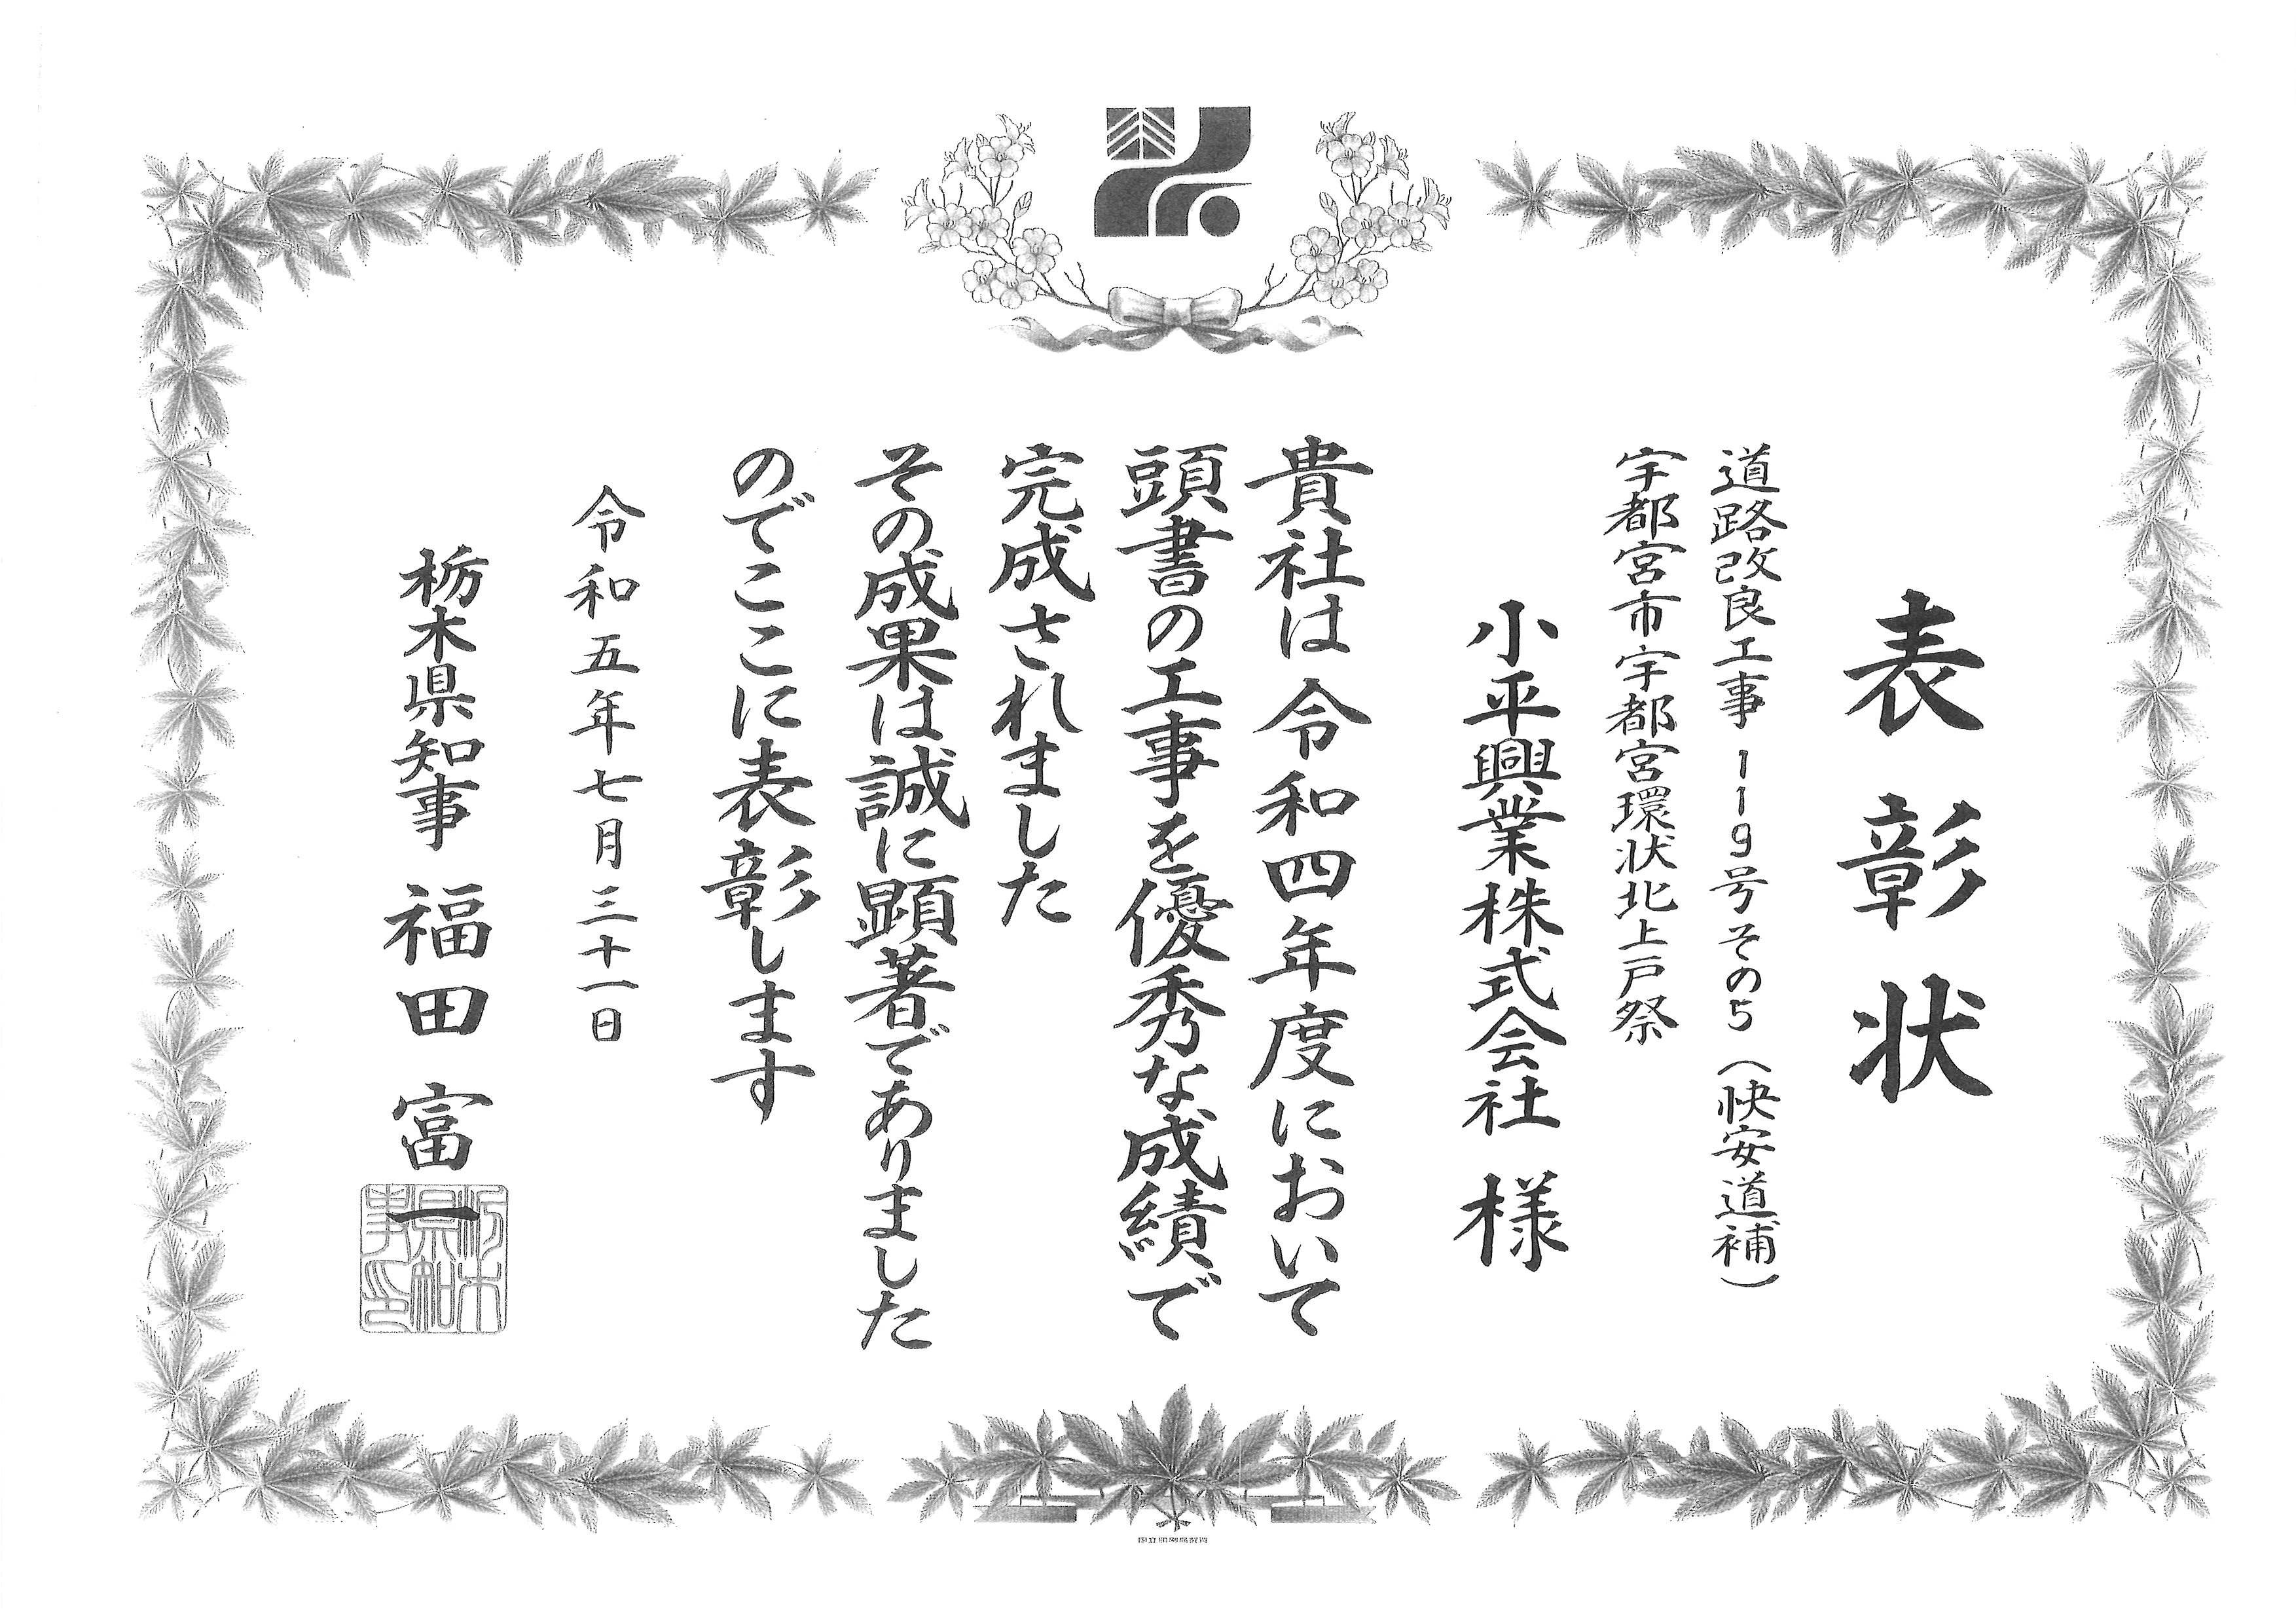 表彰状
道路改良工事119号その5（快安道補）
宇都宮市宇都宮環状北上戸祭
小平興業株式会社 様
貴社は令和四年度において
頭書の工事を優秀な成績で
完成されました
その成果は誠に顕著でありました
のでここに表彰します
令和五年七月三十一日
栃木県知事 福田富一
栃木県知事印